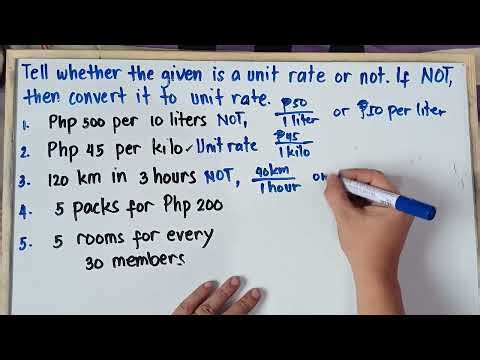 Tell whether the given is a unit rate or not. If NOT,
then convert it to unit rate.
1. Php 500 per 10 liters NOT, ₱50/1 liter or ₱50 per liter
2. Php 45 per kilo ✓ Unit rate ₱45/1 kilo
3. 120 km in 3 hours NOT, 40km/1 hour or
4. 5 packs for Php 200
5. 5 rooms for every
30 members